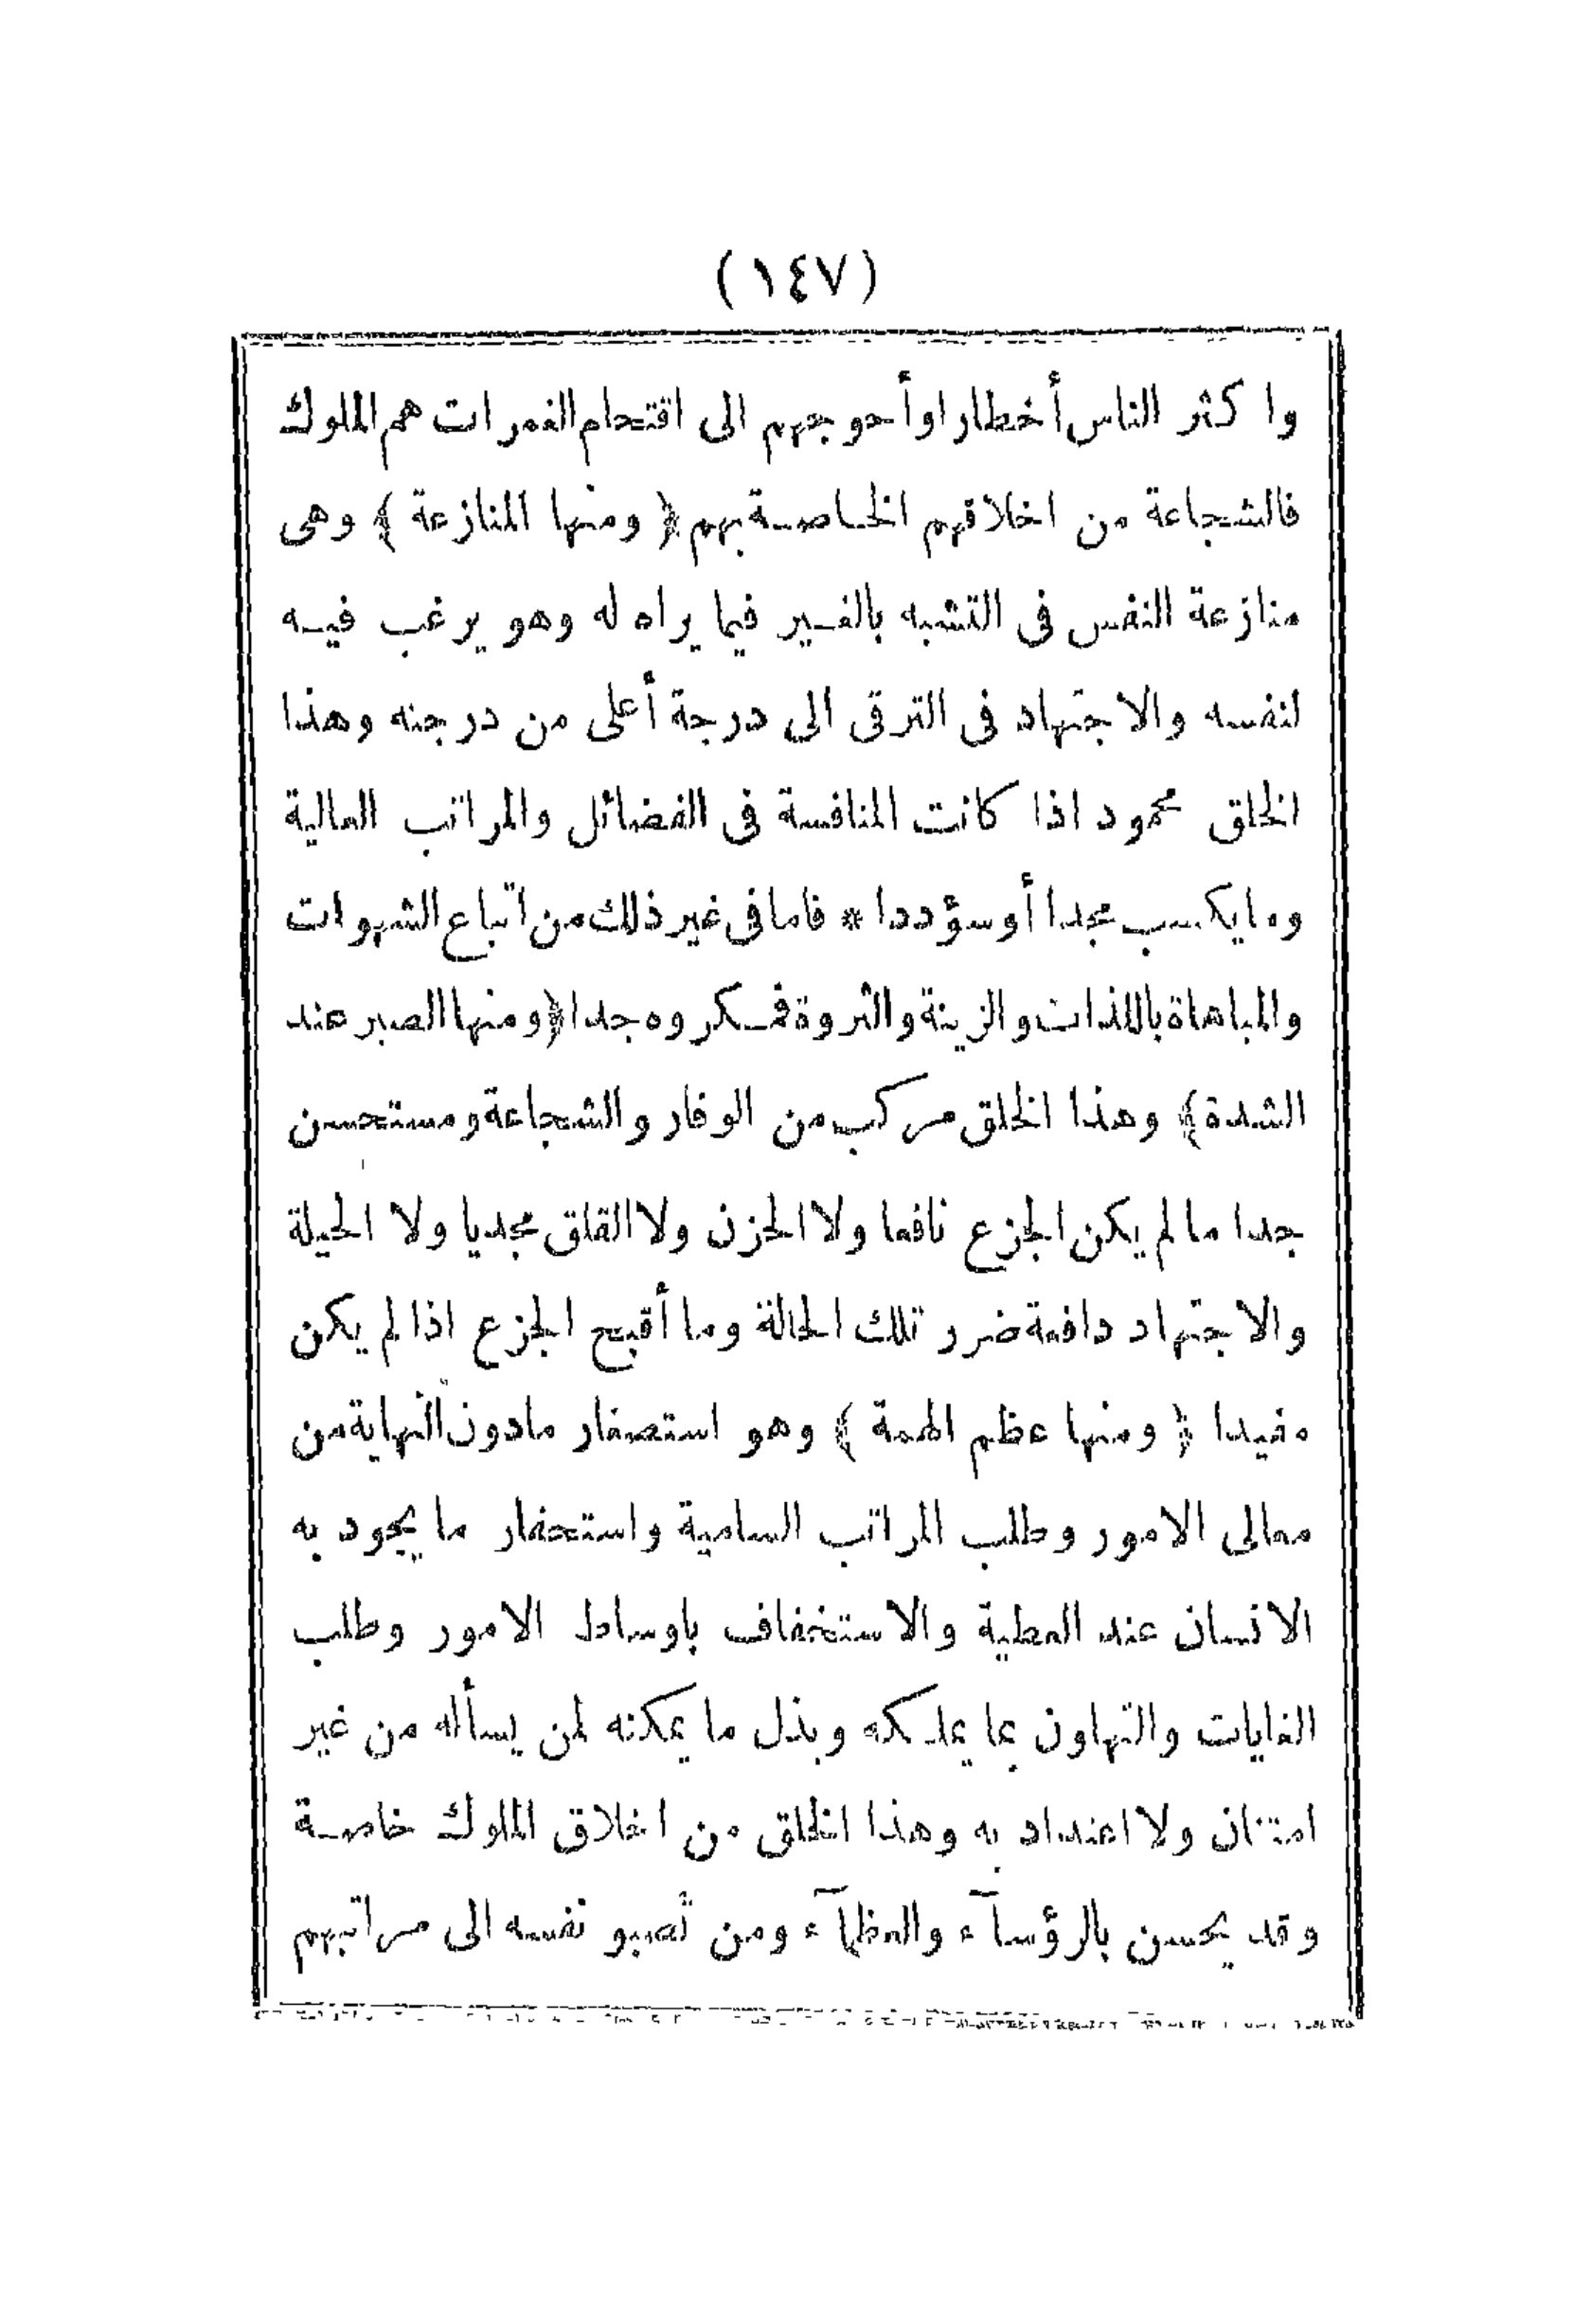 (١٤٧)
واكثر الناس أخطارا وأحوجهم الى اقتحام الغمرات هم الملوك
فالشجاعة من اخلاقهم الخاصة بهم ﴿ ومنها المنازعة ﴾ وهى
منازعة النفس فى التشبه بالغير فيما يراه له وهو يرغب فيه
لنفسه والاجتهاد فى الترقى الى درجة أعلى من درجته وهذا
الخلق محمود اذا كانت المنافسة فى الفضائل والمراتب العالية
وما يكسب مجدا أو سؤددا * فاما فى غير ذلك من اتباع الشهوات
والمباهاة باللذات والزينة والثروة فمكروه جدا ﴿ ومنها الصبر عند
الشدة ﴾ وهذا الخلق مركب من الوقار والشجاعة ومستحسن
جدا ما لم يكن الجزع نافعا ولا الحزن ولا القلق مجديا ولا الحيلة
والاجتهاد دافعة ضرر تلك الحالة وما أقبح الجزع اذا لم يكن
مفيدا ﴿ ومنها عظم الهمة ﴾ وهو استصغار ما دون النهاية من
معالى الامور وطلب المراتب السامية واستحقار ما يجود به
الانسان عند العطية والاستخفاف باوساط الامور وطلب
الغايات والتهاون بما يملكه وبذل ما يمكنه لمن يسأله من غير
امتنان ولا اعتداد به وهذا الخلق من اخلاق الملوك خاصة
وقد يحسن بالرؤسآء والعظمآء ومن تصبو نفسه الى مراتبهم